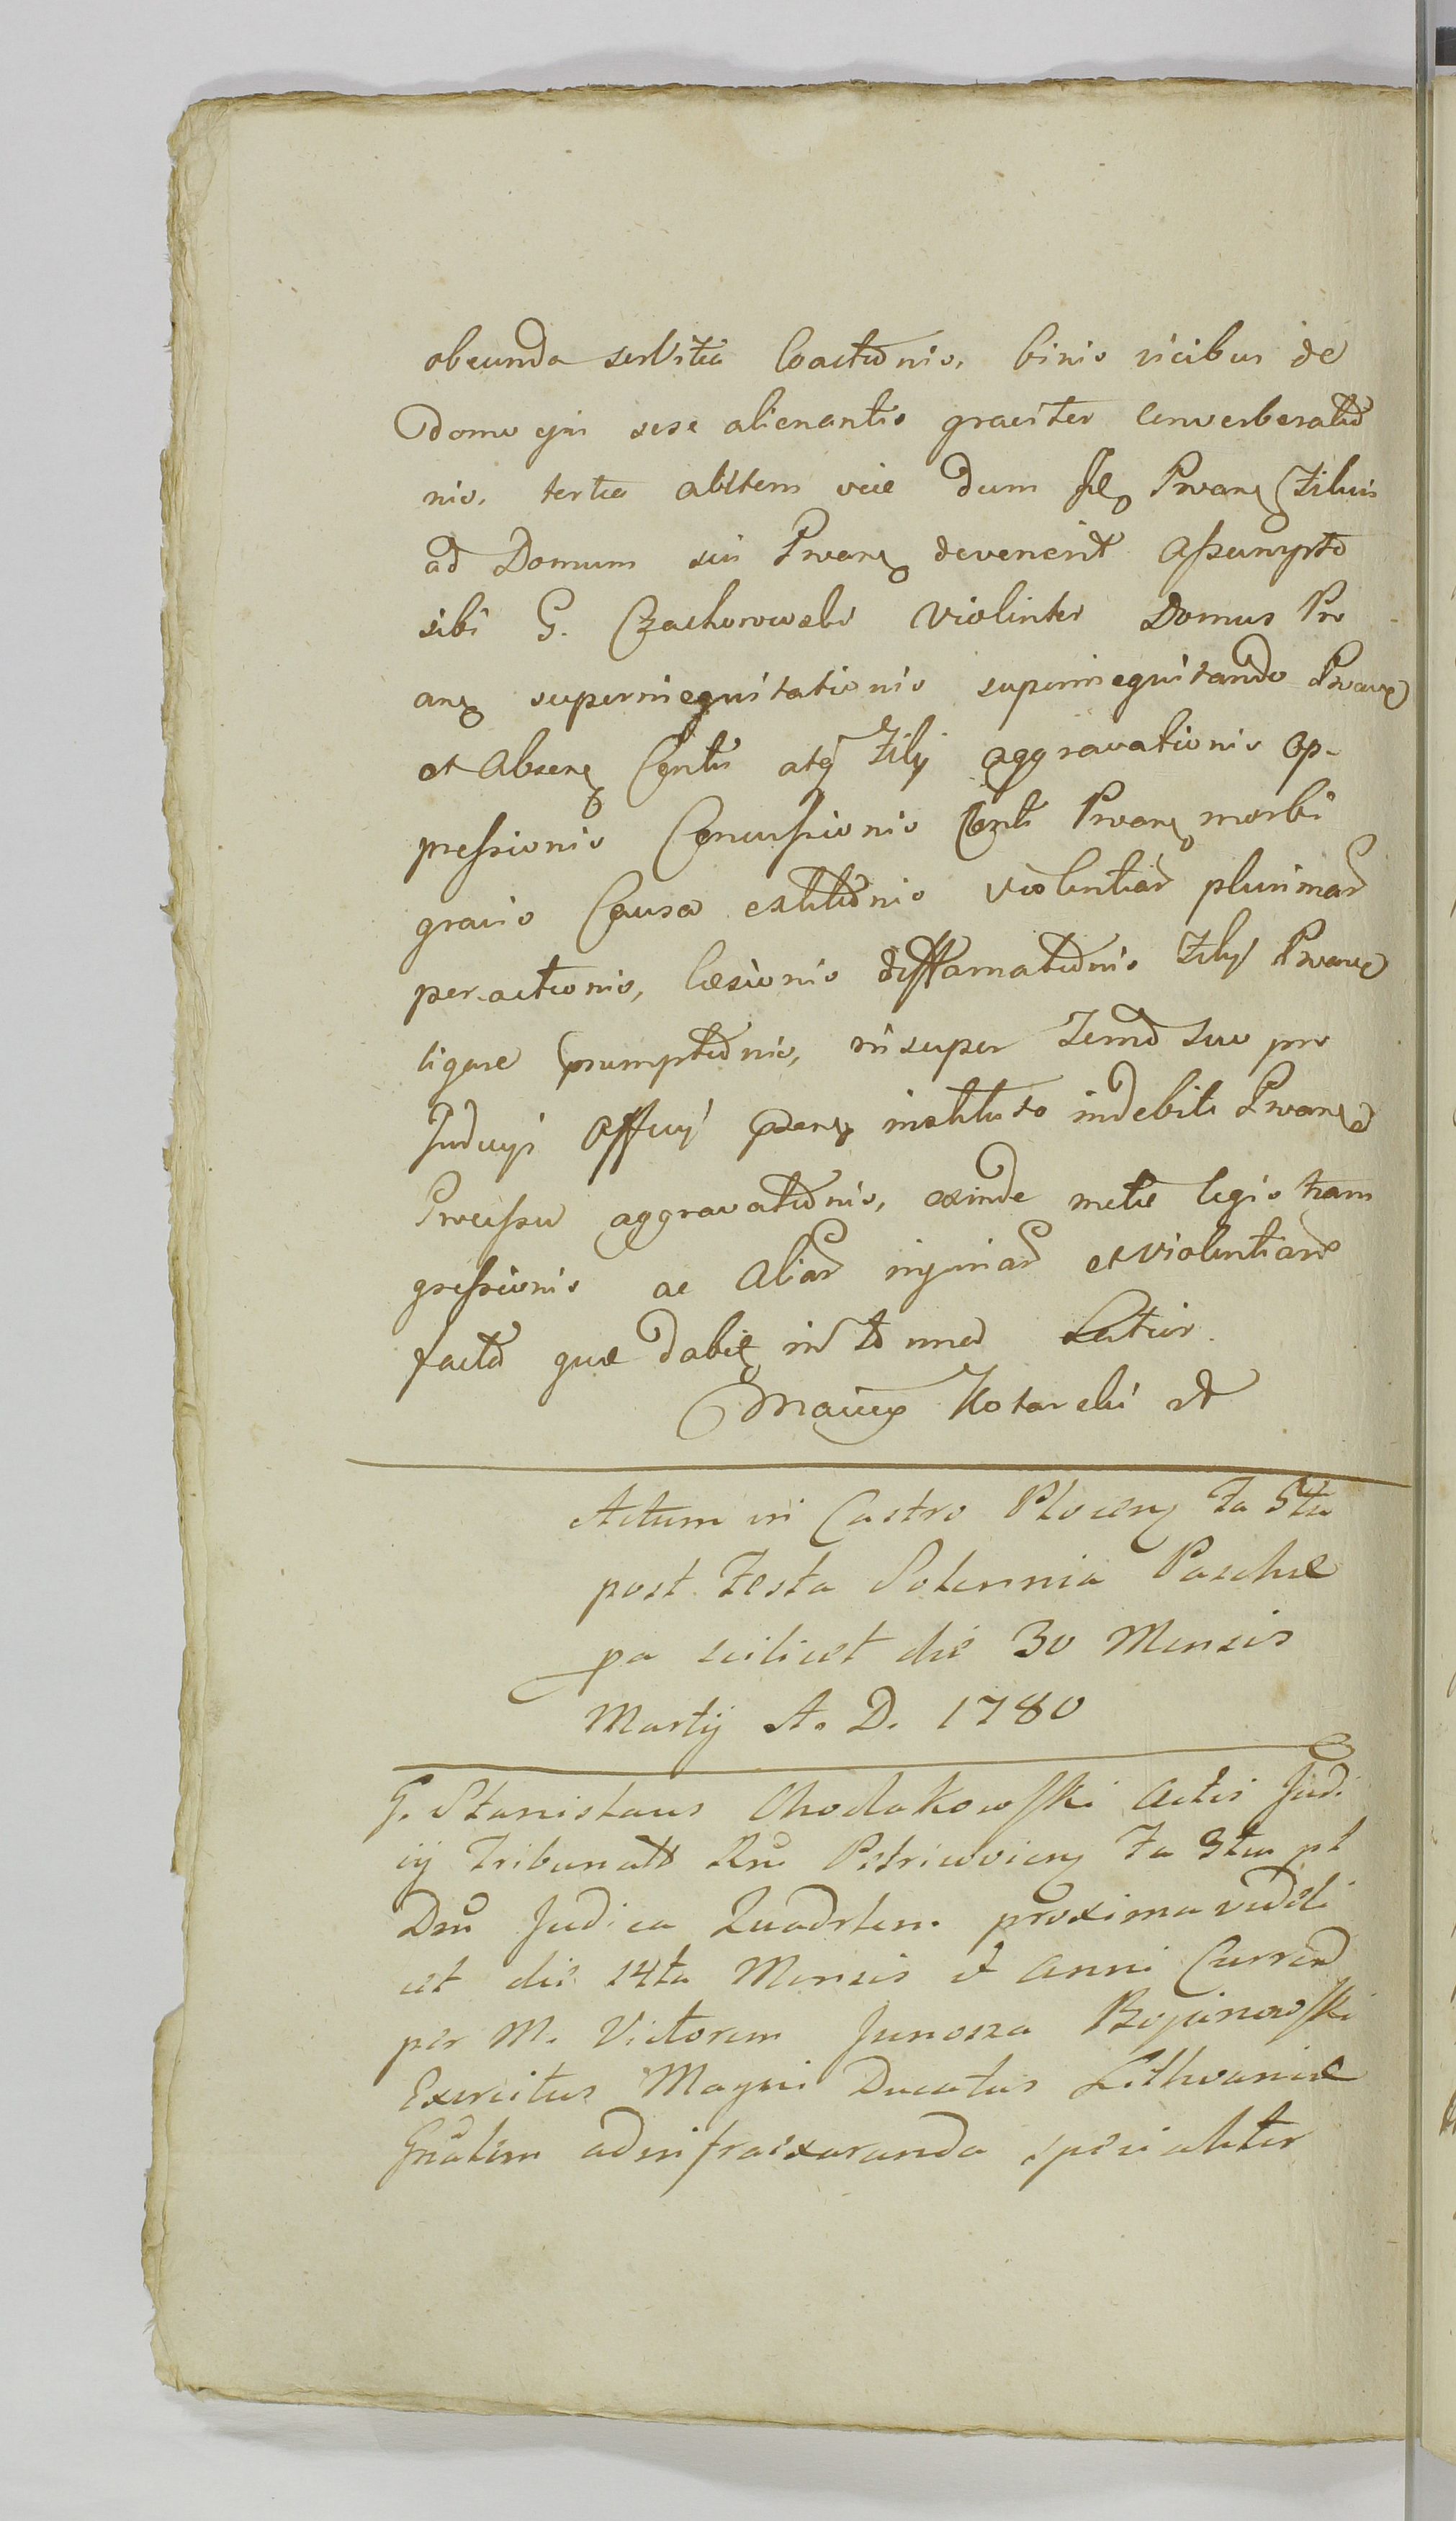 obeunda servitia Coactionis, binis vicibus de
domo ejus sese alienantis graviter Converberatio
nis, tertia autem vice dum Proanz Filius
ad Domum sui Proanz devenerit Assumpto
sibi G. Czachorowski violenter Domus Pro
anz superinequitationis superinequitando Proanz
et Absenz Contis atq Filij aggravationis op-
pressionis Concussionis Conti Proanz morbi
gravis Causa extitionis violentiar plurimar
peractionis, læsionis diffamationis Filij Proanz
ligare prsumptionis, insuper Termo suo pro
Judicÿs Officÿ psenz instituto indebite Proanz
Processu aggravationis, exinde metæ legis trans
gressionis ac Aliar injuriar et violentiar
facto quæ dabit in to mno Latior.
Kotarski
Actum in Castro Plocenz Fa 5ta
post Festa Solennia Paschæ
pa scilicet die 30 Mensis
Martÿ A. D. 1780
G. Stanislaus Chodakowski Actis Judi
cÿ Tribunalis Rni Petricoviens Fa 3tia pt
Dm Judica Quadrlem proxima videli
cet die 14ta Mensis et Anni Curren
per M. Victorem Junosza Bojanowski
Exercitus Magni Ducatus Lithvaniæ
Gnalem ad infraexaranda specialiter